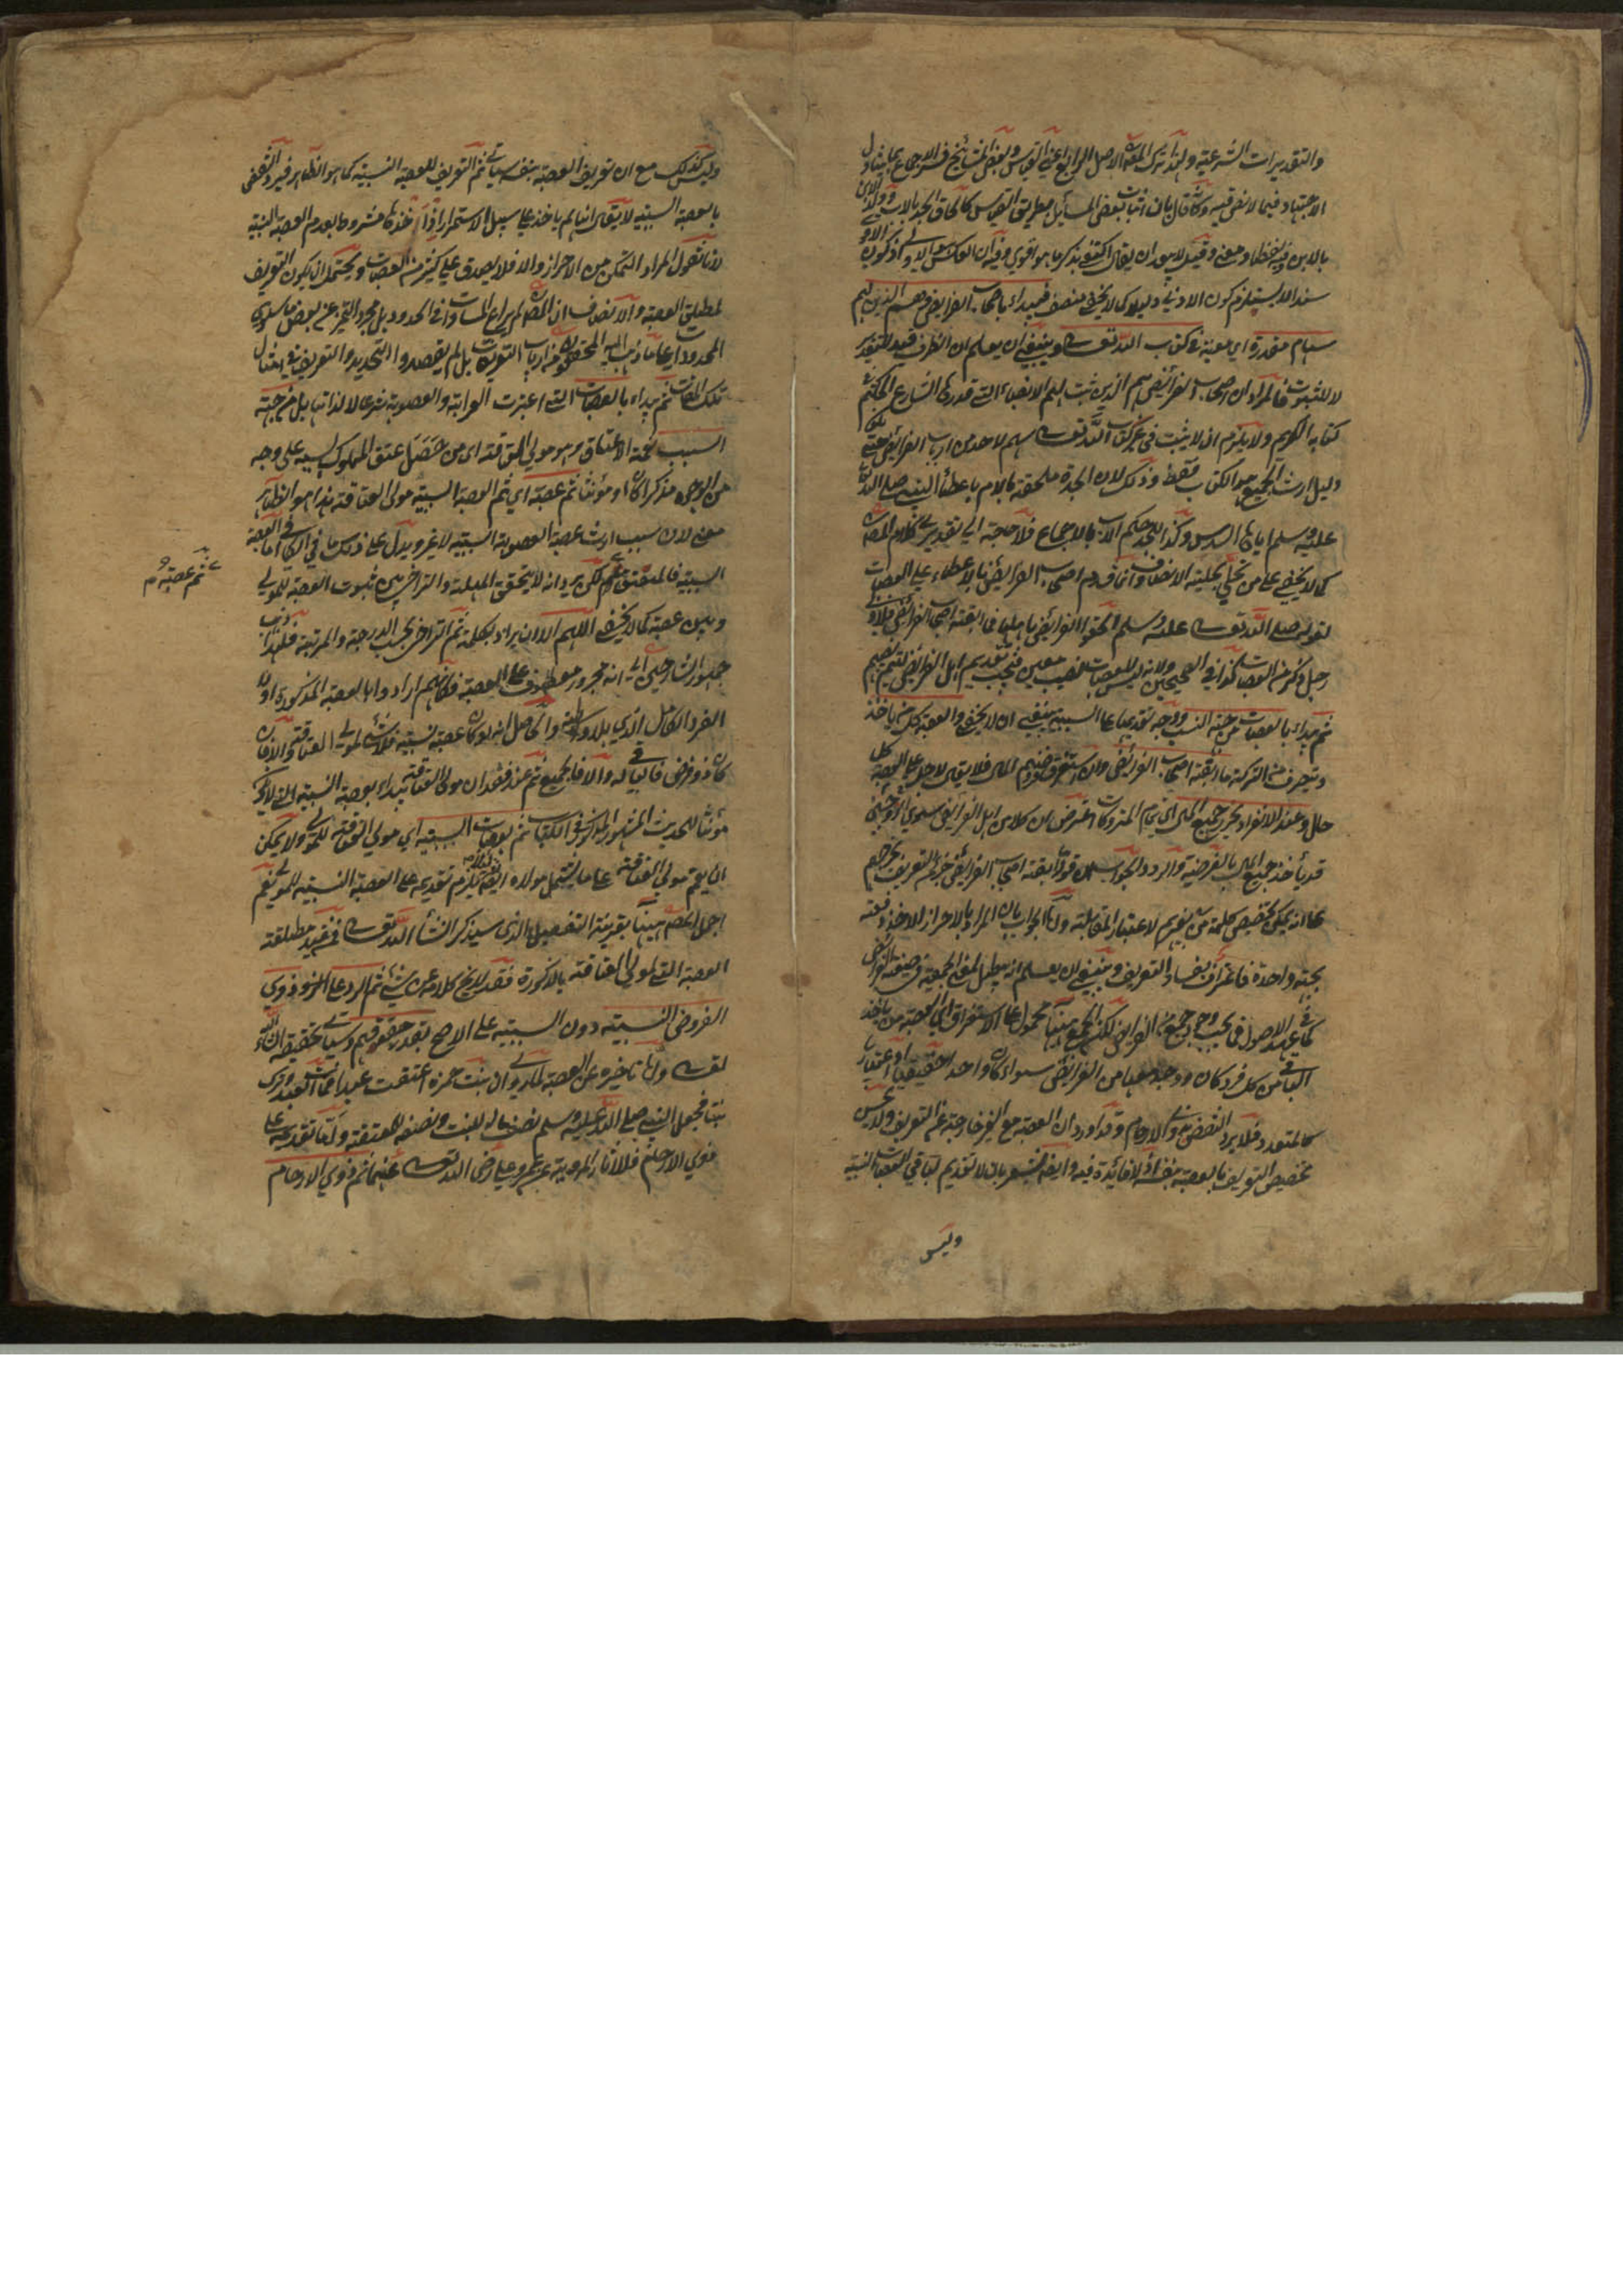 والتقديرات الشرعية ولذا ترك المص الاصل الرابع اعني القياس وبعض المشائخ فسر الاجماع بما يتناول
الاجتهاد فيما لا نص فيه وكانه قال بان اثبات بعض المسائل بطريق القياس كالحاق الجد بالاب وولد الابن
بالابن وفيه لفظا ومعنى وقيل لا يبعد ان يقال اكتفى بذكر ما هو اقوى وفيه ان العكس اولى
سند الا يستلزم كون الادنى دليلا كما لا يخفى على منصف فيبداء باصحاب الفرائض وهم الذين لهم
سهام مقدرة اي معينة في كتاب الله تعالى وينبغي ان يعلم ان الظرف قيد للتقدير
لا للثبوت فالمراد ان اصحاب الفرائض هم الذين ثبت لهم الانصباء التي قدرها الشارع الحكيم في
كتابه الكريم ولا يلزم ان لا يثبت في غير كتاب الله تعالى سهم لاحد من ارباب الفرائض حتى يكون
دليل ارث الجميع هو الكتاب فقط وذلك لان الجدة ملحقة بالام باعطاء النبي صلى الله
عليه وسلم اياها السدس وكذا للجد حكم الاب بالاجماع فلا حاجة الى تقدير في كلام المص
كما لا يخفى على من تحلى بحلية الانصاف وانما قدم اصحاب الفرائض بالاعطاء على العصبات
لقوله صلى الله تعالى عليه وسلم الحقوا الفرائض باهلها فما ابقته اصحاب الفرائض فلاولى
رجل ذكر من العصبات كذا في الصحيحين ولانه ليس للعصبات نصيب معين فيجب تقديم اهل الفرائض
ثم يبداء بالعصبات من جهة النسب ووجه تقديمها على السببية ينبغي ان لا يخفى والعصبة كل من ياخذ
ويتصرف من التركة ما ابقته اصحاب الفرائض وان استغرق فرضهم المال فلا يبقى لاجل العصبة
حال وعند الانفراد يحرز جميع المال اي تمام المتروكات اعترض بان كلا من اهل الفرائض سوى الزوجين
قد يأخذ جميع المال بالفرضية والرد والجواب ان قوله ما ابقته اصحاب الفرائض جزء التعريف يخرجهم
على انه يمكن تخصيص كلمة من بغيرهم لاعتبار المقابلة وانما الجواب بان المراد بالاحراز الاخذ دفعة
بجهة واحدة فاعتراف بفساد التعريف وينبغي ان يعلم انه يبطل معنى الجمعية في صيغة الفرائض
كما عهد في الاصول فما يجب وجود جميع الفرائض لكن الجمع ههنا محمول على الاستغراق اي العصبة من ياخذ
الباقي من كل فرد كان وجد معها من الفرائض سواء كان واحدا حقيقيا او اعتباريا
كالمتعدد فلا يرد النقض بذوي الارحام وقد اورد ان العصبة مع الغير خارجة عن التعريف ولا يحسن
تخصيص التعريف بالعصبة بنفسه اذ لا فائدة فيه وايضا يشعر بان لا تقديم لباقي العصبات النسبية
وليس
وليس كذلك مع ان تعريف العصبة بنفسه سياتي ثم التعريف للعصبة النسبية كما هو الظاهر فيرد النقض
بالعصبة السببية لا يقال انها لم ياخذ على سبيل الاستمرار اذ اخذها مشروط بعدم العصبة النسبية
لانا نقول المراد التمكن من الاحراز والا فلا يصدق على كثير من العصبات ويحتمل ان يكون التعريف
لمطلق العصبة والانصاف ان المص لم يراع المساوات في الحدود بل مجرد التميز عن بعض ما سوى
المحدودات على ما ذهب اليه المحققون من ارباب التعريفات بل لم يقصدوا التحديد والتعريف في امثال
تلك المقامات ثم يبداء بالعصبات التي اعتبرت القرابة والعصوبة شرعا لا لذاتها بل من جهة
السبب كصفة الاعتاق وهو مولى العتاقة اي من حصل عتق المملوك بسببه على وجه
من الوجوه مذكرا كان او مؤنثا ثم عصبة اي ثم العصبة السببية مولى العتاقة هذا هو الظاهر
معنى لان سبب ارث عصبة العصوبة السببية لا غير ويدل على ذلك ما في الكافي اما العصبة
السببية فالمعتق ثم عصبة لكن يرد انه لا يتحقق المهلة والتراخي بين ثبوت العصبة للمولى
وبين عصبته كما لا يخفى اللهم الا ان يراد بكلمة ثم التراخي بحسب الدرجة والمرتبة فلهذا ذهب
جمهور الشارحين الى انه مجرور معطوف على العصبة فكانهم ارادوا بالعصبة المذكورة اولا
الفرد الكامل الذي بلا واسطة والحاصل انه لو كان عصبة نسبية فلا شئ لمولى العتاقة والا فان
كان ذو فرض فالباقي له والا فالجميع ثم عند فقدان مولى العتاقة يبداء بعصبة النسبية الذي لا ذكر
مؤنثا للحديث المشهور المذكور في الكتاب ثم بعصبات السببية اي مولى العتاقة للمولى ولا يمكن
ان يعم مولى العتاقة على ما يشتمل مولاه ايضا لانه يلزم تقديمه على العصبة النسبية للمولى نعم
اجمل المص ههنا بقرينة التفصيل الذي سيذكر ان شاء الله تعالى فيفيد مطلقة
العصبة التي لمولى العتاقة بالذكورة فقد لا يخ كلامه عن شئ ثم الرد على ذوي
الفروض النسبية دون السببية على الاصح بقدر حقوقهم وسياتي تحقيقه ان شاء الله
تعالى وانما تاخيره عن العصبة لما روي ان بنت حمزة اعتقت عبدا فمات العبد وترك
بنتا فجعل النبي صلى الله عليه وسلم نصف ماله للبنت ونصفه للمعتقة وانما تقديمه على
ذوي الارحام فللاثار المروية عن عمر وعلي رضي الله تعالى عنهما ثم ذوي الارحام
ثم عصبته م